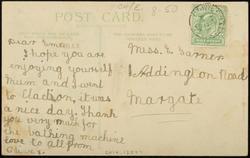 C/E 8-50
POST CARD.
Dear Emelie
I hope you are
enjoying yourself
Mum and I went
to Clacton, it was
a nice day. Thank
you very much for
the bathing machine
love to all from
Miss. E. Garner
Addington Road
Margate